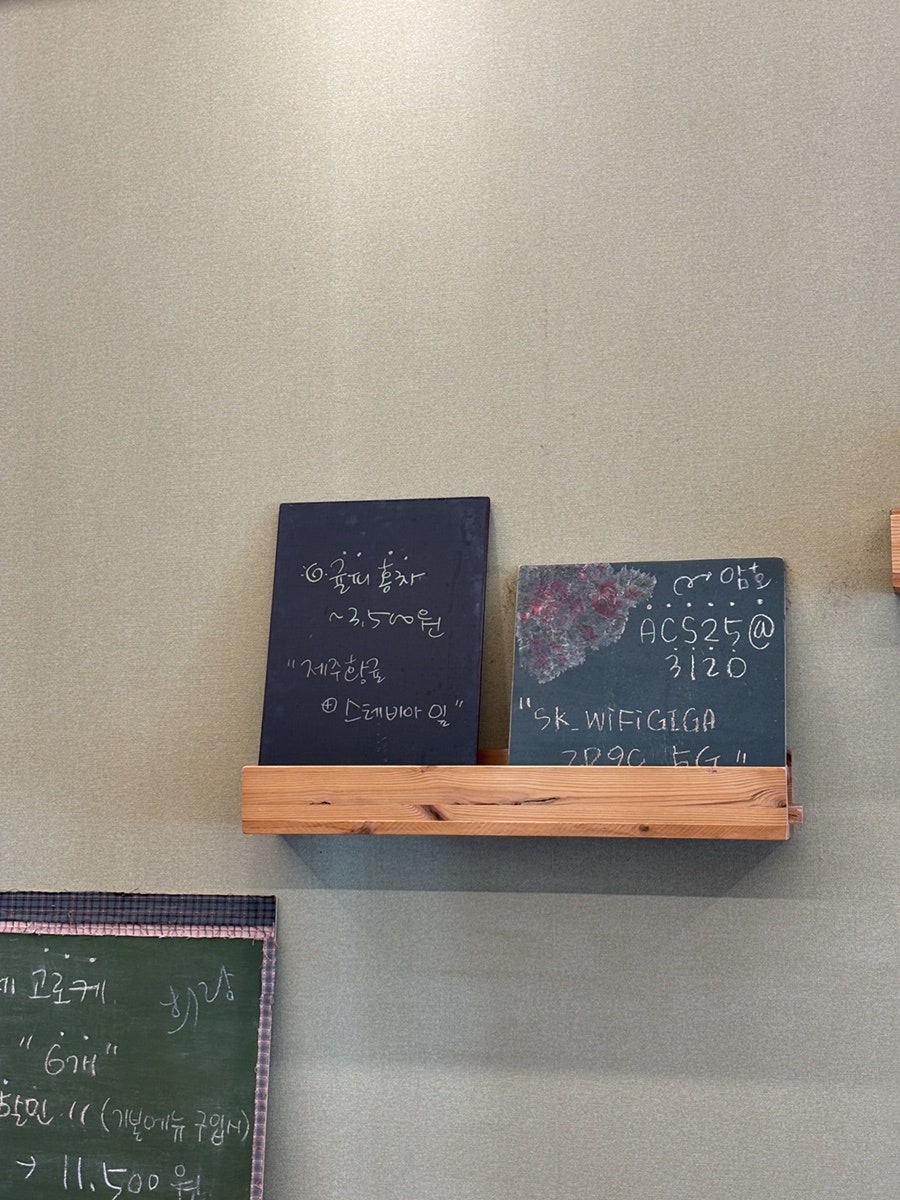 귤피 홍차
~3,500원
"제주황귤
⊕ 스테비아 잎"
암호
ACS25@
3120
"SK_WiFiGIGA
5G"
고로케
"6개"
할인 (기본메뉴 구입시)
→ 11,500원